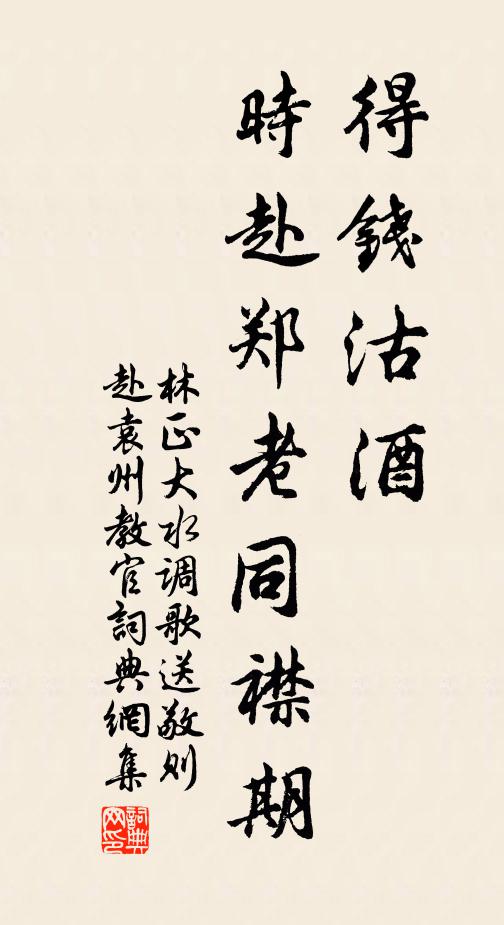 得錢沽酒
時赴郑老同襟期
林正大水调歌送敬则
赴袁州教官詞典網集
詞典网印